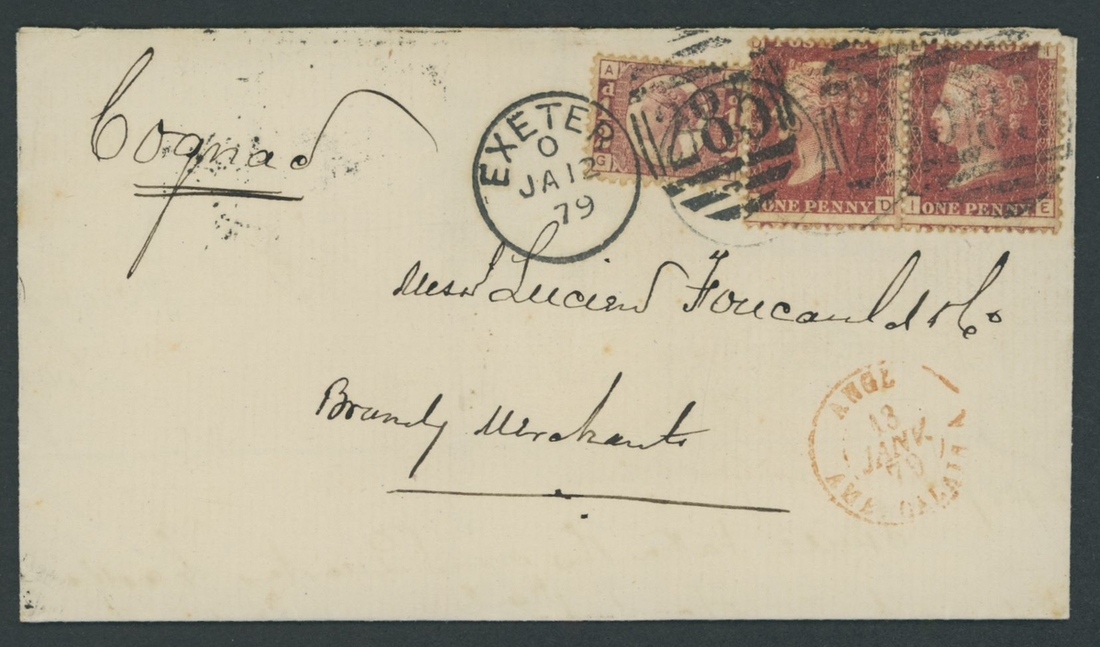 Cognac
EXETER
O
JA 12
79
285
ONE PENNY
D
I
ONE PENNY
E
Messrs Lucien Foucauld & Co
Brandy Merchants
ANGL
13
JANV.
79
AMB. CALAIS A